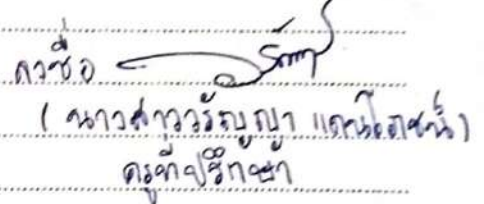 ลงชื่อ
(นางสาววรัญญา แดนโภชน์)
ครูที่ปรึกษา